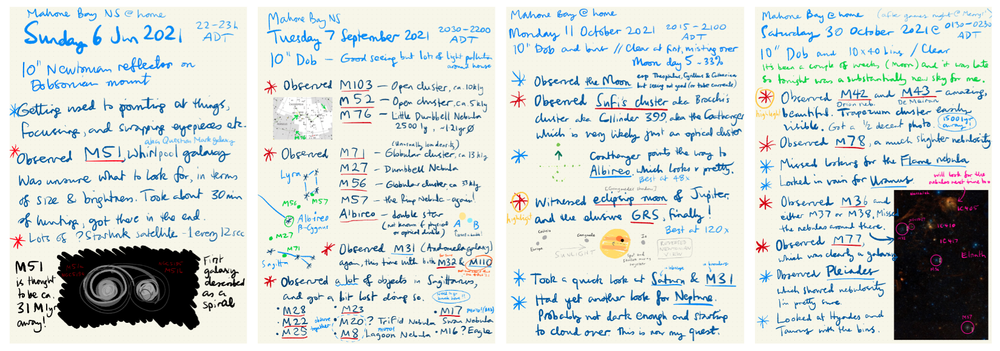 Mahone Bay NS @ home
Sunday 6 Jun 2021
22-23h
ADT
10" Newtonian reflector on
Dobsonian mount
Getting used to pointing at things,
focussing, and swapping eyepieces etc.
Observed M51, Whirlpool galaxy
Was unsure what to look for, in terms
of size & brightness. Took about 30 min
of hunting, got there in the end.
Lots of ? Starlink satellite - 1 every 12 sec
M51
is thought
to be ca.
31 Mly
away!
First
galaxy
described
as a
spiral
Mahone Bay NS
Tuesday 7 September 2021
2030-2200
ADT
10" Dob - Good seeing but lots of light pollution
around house
Observed M103 - Open cluster, ca. 10 kly
M52 - Open cluster, ca. 5 kly
M76 - Little Dumbbell Nebula
2500 ly,
Observed M71 -
Globular cluster, ca. 13 kly
M27 - Dumbbell Nebula
M56 - Globular cluster
M57 - the Ring Nebula
Albireo - double star
Lyra
M56
M57
Albireo
β-Cygnus
M27
M71
A
B
Observed M31 (Andromeda galaxy)
again, this time with both M32 & M110
Observed a lot of objects in Sagittarius,
and got a bit lost doing so.
M28
M22
M25
M23
M20? Trifid Nebula
M8, Lagoon Nebula
M17
Swan Nebula
M16? Eagle
Mahone Bay @ home
Monday 11 October 2021
2015-2100
ADT
10" Dob and bins // Clear at first, misting over
Moon day 5 - 33%
Observed the Moon
esp Theophilus, Cyrillus & Catharina
Observed Sufi's cluster aka Brocchi's
cluster aka Collinder 399, aka the Coathanger
which is very likely just an optical cluster
Coathanger points the way to
Albireo which looks v pretty.
Best at 48x
Witnessed eclipsing moon of Jupiter,
and the elusive GRS, finally!
Best at 120x
Europa
Ganymede
Io
SUNLIGHT
Took a quick look at Saturn & M31
Had yet another look for Neptune.
Probably not dark enough and starting
to cloud over. This is now my quest.
Mahone Bay @ home
Saturday 30 October 2021 @
0130-0230
ADT
10" Dob and 10x40 bins / Clear
It's been a couple of weeks, (moon) and it was late
so tonight was a substantially new sky for me.
Observed M42 and M43 - amazing,
Orion neb.
De Mairan
beautiful. Trapezium cluster easily
visible. Got a 1/2 decent photo.
1500 ly
away!
Observed M78, a much slighter nebulosity
Missed looking for the Flame nebula
will look for the
nebulas next time too
Looked in vain for Uranus
Observed M36 and
either M37 or M38. Missed
the nebulas around there.
Observed M77,
which was clearly a galaxy
Observed Pleiades
which showed nebulosity
I'm pretty sure.
Looked at Hyades and
Taurus with the bins.
IC 405
IC 410
IC 417
M38
M36
M37